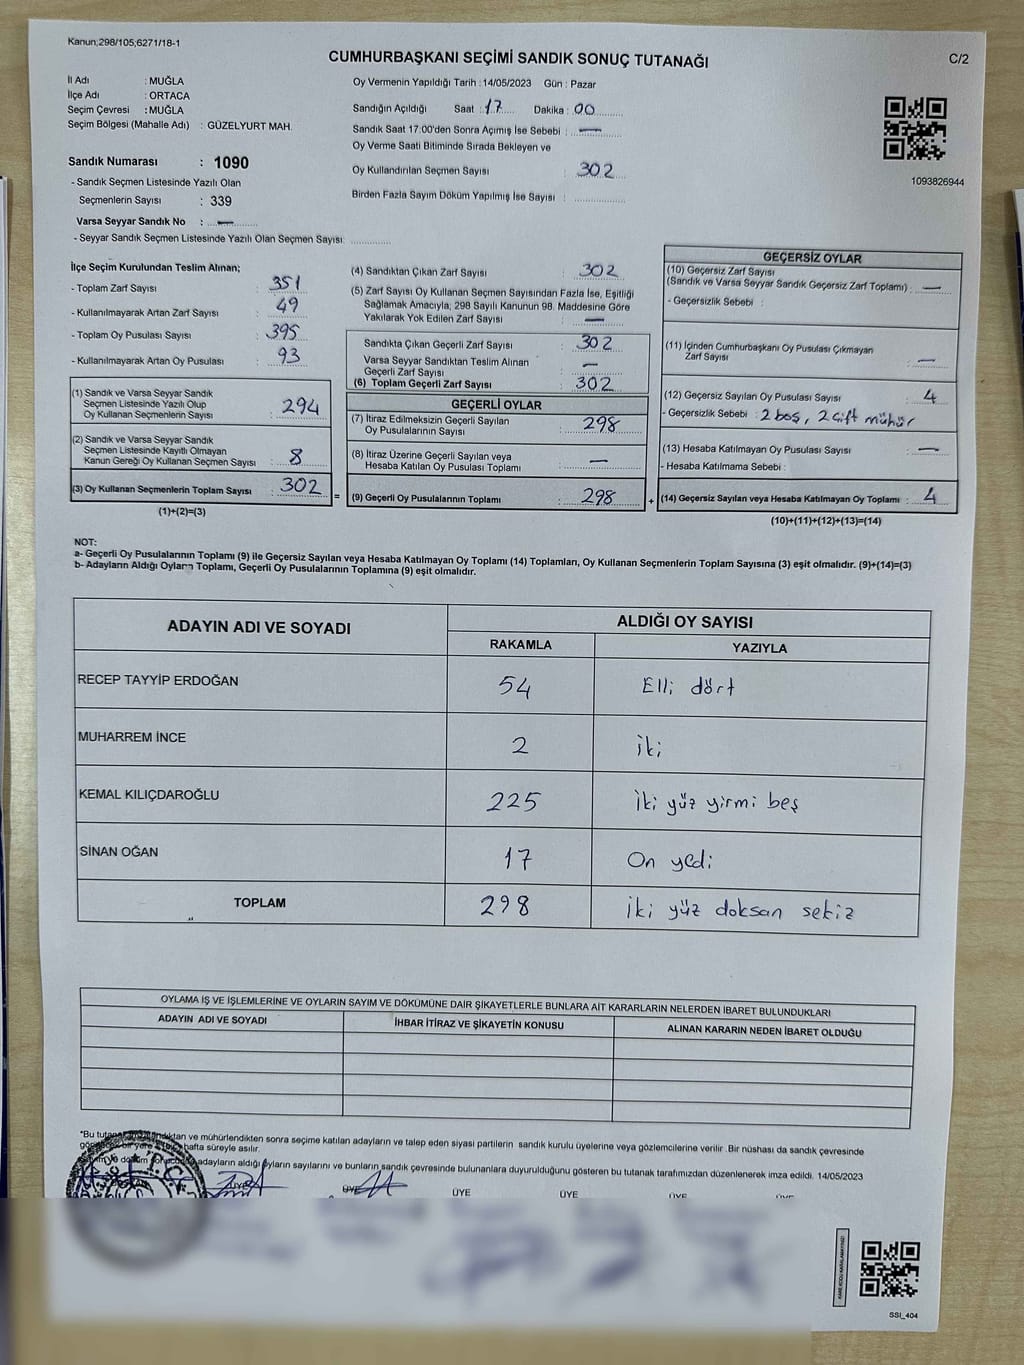 Kanun;298/105;6271/18-1
CUMHURBAŞKANI SEÇİMİ SANDIK SONUÇ TUTANAĞI
C/2
İl Adı : MUĞLA
İlçe Adı : ORTACA
Seçim Çevresi : MUĞLA
Seçim Bölgesi (Mahalle Adı) : GÜZELYURT MAH.
Sandık Numarası : 1090
- Sandık Seçmen Listesinde Yazılı Olan
Seçmenlerin Sayısı : 339
Varsa Seyyar Sandık No : —
- Seyyar Sandık Seçmen Listesinde Yazılı Olan Seçmen Sayısı: ..............
Oy Vermenin Yapıldığı Tarih : 14/05/2023 Gün : Pazar
Sandığın Açıldığı Saat : 17 Dakika : 00
Sandık Saat 17:00'den Sonra Açımış İse Sebebi : —
Oy Verme Saati Bitiminde Sırada Bekleyen ve
Oy Kullandırılan Seçmen Sayısı : 302
Birden Fazla Sayım Döküm Yapılmış İse Sayısı : ..............
1093826944
İlçe Seçim Kurulundan Teslim Alınan;
- Toplam Zarf Sayısı : 351
- Kullanılmayarak Artan Zarf Sayısı : 49
- Toplam Oy Pusulası Sayısı : 395
- Kullanılmayarak Artan Oy Pusulası : 93
(1) Sandık ve Varsa Seyyar Sandık
Seçmen Listesinde Yazılı Olup
Oy Kullanan Seçmenlerin Sayısı : 294
(2) Sandık ve Varsa Seyyar Sandık
Seçmen Listesinde Kayıtlı Olmayan
Kanun Gereği Oy Kullanan Seçmen Sayısı : 8
(3) Oy Kullanan Seçmenlerin Toplam Sayısı : 302
(1)+(2)=(3)
=
(4) Sandıktan Çıkan Zarf Sayısı : 302
(5) Zarf Sayısı Oy Kullanan Seçmen Sayısından Fazla İse, Eşitliği
Sağlamak Amacıyla, 298 Sayılı Kanunun 98. Maddesine Göre
Yakılarak Yok Edilen Zarf Sayısı : —
Sandıkta Çıkan Geçerli Zarf Sayısı : 302
Varsa Seyyar Sandıktan Teslim Alınan
Geçerli Zarf Sayısı : —
(6) Toplam Geçerli Zarf Sayısı : 302
GEÇERLİ OYLAR
(7) İtiraz Edilmeksizin Geçerli Sayılan
Oy Pusulalarının Sayısı : 298
(8) İtiraz Üzerine Geçerli Sayılan veya
Hesaba Katılan Oy Pusulası Toplamı : —
(9) Geçerli Oy Pusulalarının Toplamı : 298
+
GEÇERSİZ OYLAR
(10) Geçersiz Zarf Sayısı
(Sandık ve Varsa Seyyar Sandık Geçersiz Zarf Toplamı) : —
- Geçersizlik Sebebi :
(11) İçinden Cumhurbaşkanı Oy Pusulası Çıkmayan
Zarf Sayısı : —
(12) Geçersiz Sayılan Oy Pusulası Sayısı : 4
- Geçersizlik Sebebi : 2 boş, 2 çift mühür
(13) Hesaba Katılmayan Oy Pusulası Sayısı : —
- Hesaba Katılmama Sebebi :
(14) Geçersiz Sayılan veya Hesaba Katılmayan Oy Toplamı : 4
(10)+(11)+(12)+(13)=(14)
NOT:
a- Geçerli Oy Pusulalarının Toplamı (9) ile Geçersiz Sayılan veya Hesaba Katılmayan Oy Toplamı (14) Toplamları, Oy Kullanan Seçmenlerin Toplam Sayısına (3) eşit olmalıdır. (9)+(14)=(3)
b- Adayların Aldığı Oyların Toplamı, Geçerli Oy Pusulalarının Toplamına (9) eşit olmalıdır.
ADAYIN ADI VE SOYADI ALDIĞI OY SAYISI
RAKAMLA YAZIYLA
RECEP TAYYİP ERDOĞAN 54 Elli dört
MUHARREM İNCE 2 iki
KEMAL KILIÇDAROĞLU 225 iki yüz yirmi beş
SİNAN OĞAN 17 On yedi
TOPLAM 298 iki yüz doksan sekiz
OYLAMA İŞ VE İŞLEMLERİNE VE OYLARIN SAYIM VE DÖKÜMÜNE DAİR ŞİKAYETLERLE BUNLARA AİT KARARLARIN NELERDEN İBARET BULUNDUKLARI
ADAYIN ADI VE SOYADI İHBAR İTİRAZ VE ŞİKAYETİN KONUSU ALINAN KARARIN NEDEN İBARET OLDUĞU
*Bu ve mühürlendikten sonra seçime katılan adayların ve talep eden siyasi partilerin sandık kurulu üyelerine veya gözlemcilerine verilir. Bir nüshası da sandık çevresinde
hafta süreyle asılır.
adayların aldığı oyların sayılarını ve bunların sandık çevresinde bulunanlara duyurulduğunu gösteren bu tutanak tarafımızdan düzenlenerek imza edildi. 14/05/2023
ÜYE ÜYE ÜYE ÜYE ÜYE ÜYE
SSI_404